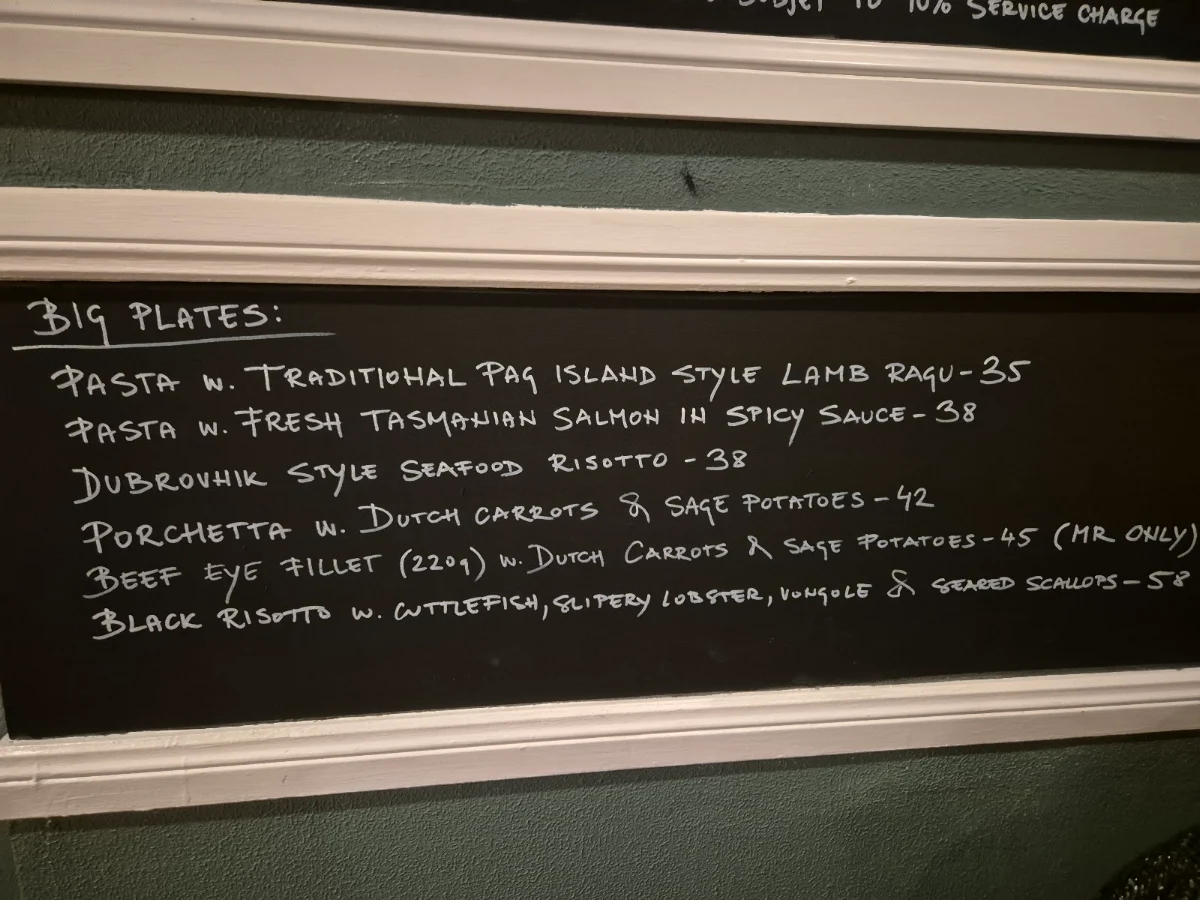 TO 10% SERVICE CHARGE
BIG PLATES:
PASTA W. TRADITIONAL PAG ISLAND STYLE LAMB RAGU - 35
PASTA W. FRESH TASMANIAN SALMON IN SPICY SAUCE - 38
DUBROVNIK STYLE SEAFOOD RISOTTO - 38
PORCHETTA W. DUTCH CARROTS & SAGE POTATOES - 42
BEEF EYE FILLET (220g) W. DUTCH CARROTS & SAGE POTATOES - 45 (MR ONLY)
BLACK RISOTTO W. CUTTLEFISH, SLIPERY LOBSTER, VONGOLE & SEARED SCALLOPS - 58